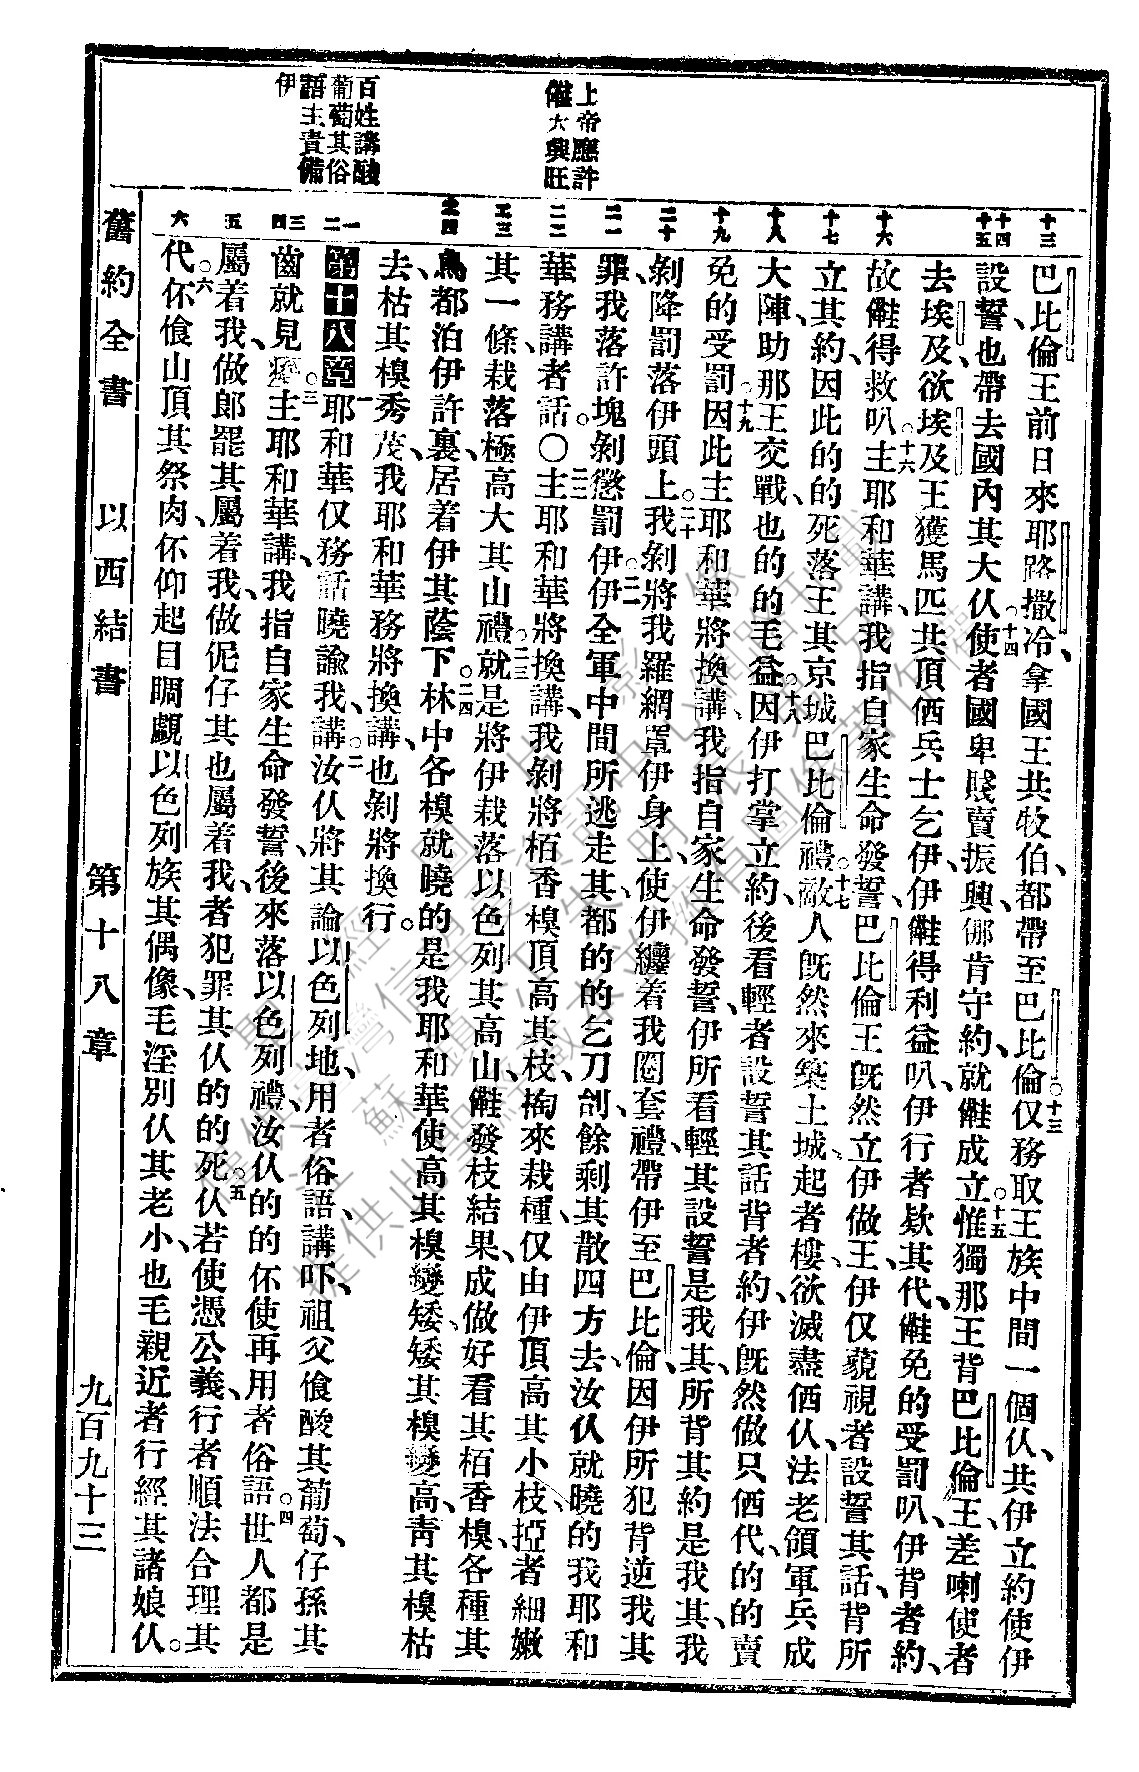 上帝應許
倠大興旺
百姓講酸
葡萄其俗
語主責備
伊
十三
十四
十五
十六
十七
十八
十九
二十
二一
二二
二三
二四
一
二
三
四
五
六
巴比倫王前日來耶路撒冷、拿國王共牧伯、都帶至巴比倫。十三仅務取王族中間一個仈、共伊立約使伊
設誓、也帶去國內其大仈。十四使者國卑賤賣振興、𠀾肯守約、就𣍐成立。十五惟獨那王背巴比倫王、差喇使者
去埃及、欲埃及王獲馬匹共頂㑚兵士乞伊、伊𣍐得利益叭、伊行者欵其代、𣍐免的受罰叭、伊背者約、
故𣍐得救叭。十六主耶和華講、我指自家生命發誓、巴比倫王既然立伊做王、伊仅藐視者設誓其話、背所
立其約、因此的的死落王其京城巴比倫禮。十七敵人既然來築土城、起者樓、欲滅盡㑚仈、法老領軍兵成
大陣、助那王交戰、也的的毛益。十八因伊打掌立約、後看輕者設誓其話、背者約、伊既然做只㑚代、的的賣
免的受罰。十九因此主耶和華將換講、我指自家生命發誓、伊所看輕其設誓、是我其、所背其約、是我其、我
剝降罰落伊頭上。二十我剝將我羅網罩伊身上、使伊纏着我圈套禮、帶伊至巴比倫、因伊所犯背逆我其
罪、我落許塊剝懲罰伊。二一伊全軍中間所逃走其、都的的乞刀刣、餘剩其散四方去、汝仈就曉的我耶和
華務講者話。〇二二主耶和華將換講、我剝將栢香槺頂高其枝、掏來栽種、仅由伊頂高其小枝、挜者細嫩
其一條、栽落極高大其山禮。二三就是將伊栽落以色列其高山𣍐發枝結果、成做好看其栢香槺、各種其
鳥、都泊伊許裏、居着伊其蔭下。二四林中各槺就曉的是我耶和華使高其槺變矮、矮其槺變高、靑其槺枯
去、枯其槺秀茂、我耶和華務將換講、也剝將換行。
第十八章 一耶和華仅務話曉諭我講。二汝仈將其論以色列地、用者俗語講吓、祖父飡酸其葡萄、仔孫其
齒就見𤺪。三主耶和華講、我指自家生命發誓、後來落以色列禮、汝仈的的伓使再用者俗語。四世人都是
屬着我、做郎罷其屬着我、做伲仔其也屬着我、者犯罪其仈的的死。五仈若使憑公義行者順法合理其
代。六伓飡山頂其祭肉、伓仰起目睭覷以色列族其偶像、毛淫別仈其老小、也毛親近者行經其諸娘仈。
舊約全書　以西結書　第十八章　九百九十三